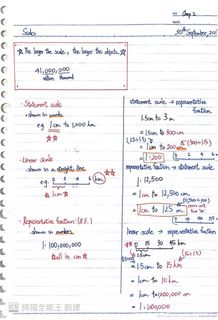 Chap 2
Scales
30th September, 201
☆ The larger the scale, the larger the objects. ☆
41,000,000
million thousand
- Statement scale
- shown in words
e.g. 1cm to 1,000 km
- Linear scale
- shown in a straight line
e.g. 0 2 4 6 km
1cm
- Representative fraction (R.F.)
- shown in numbers
1:100,000,000
all in cm
statement scale → representative fraction
1.5cm to 3 m
= 1.5cm to 300 cm
(1.5÷1.5)
(300÷1.5)
= 1cm to 200 cm
= 1:200
0 2 4 6 8
representative fraction → statement scale
1:12,500
= 1cm to 12,500 cm
= 1cm to 125 m
linear scale → representative fraction
0 15 30 45 km
1.5cm
= 1.5cm to 15 km
= 1cm to 10 km
= 1cm to 1,000,000 cm
= 1:1,000,000
掃描全能王 創建